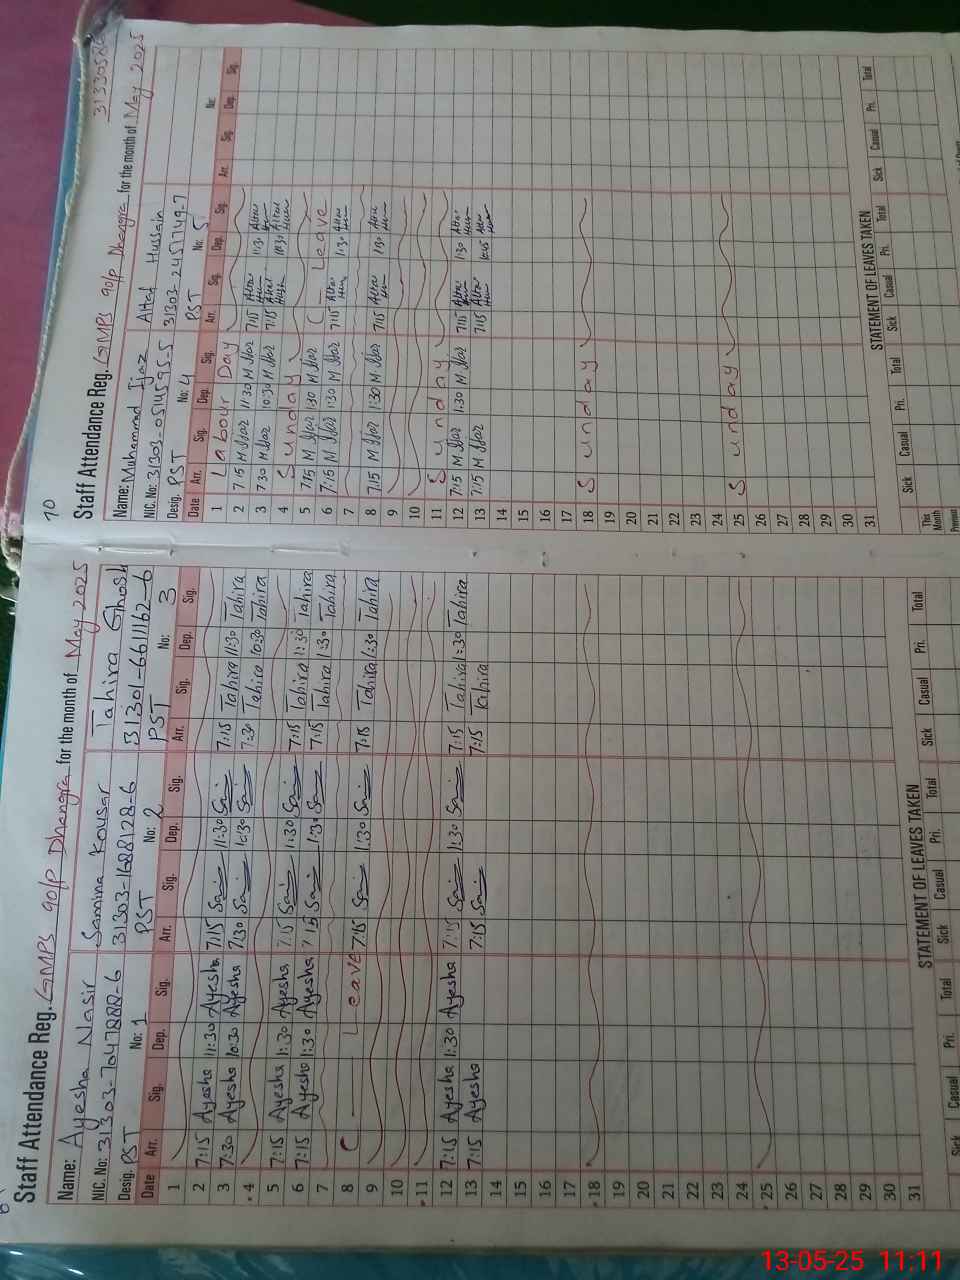 Staff Attendance Reg. GMPS 90/P Dhangra for the month of May 2025
Name: Ayesha Nasir Samina Kousar Tahira Ghosh
NIC. No: 31303-7047888-6 31303-1688128-6 31301-6611162-6
Desig. PST No: 1 PST No: 2 PST No: 3
Date Arr. Sig. Dep. Sig. Arr. Sig. Dep. Sig. Arr. Sig. Dep. Sig.
1
2 7:15 Ayesha 11:30 Ayesha 7:15 11:30 7:15 Tahira 11:30 Tahira
3 7:30 Ayesha 10:30 Ayesha 7:30 10:30 7:30 Tahira 10:30 Tahira
4
5 7:15 Ayesha 1:30 Ayesha 7:15 1:30 7:15 Tahira 1:30 Tahira
6 7:15 Ayesha 1:30 Ayesha 7:15 1:30 7:15 Tahira 1:30 Tahira
7
8 Leave 7:15 1:30 7:15 Tahira 1:30 Tahira
9
10
11
12 7:15 Ayesha 1:30 Ayesha 7:15 1:30 7:15 Tahira 1:30 Tahira
13 7:15 Ayesha 7:15 7:15 Tahira
14
15
16
17
18
19
20
21
22
23
24
25
26
27
28
29
30
31
STATEMENT OF LEAVES TAKEN
Sick Casual Pri. Total Sick Casual Pri. Total Sick Casual Pri. Total
10
Staff Attendance Reg. GMPS 90/P Dhangra for the month of May 2025
Name: Muhammad Ijaz Altaf Hussain
NIC. No: 31303-0514595-5 31303-2451749-7
Desig. PST No: 4 PST No: 5 No:
Date Arr. Sig. Dep. Sig. Arr. Sig. Dep. Sig. Arr. Sig. Dep. Sig.
1 Labour Day
2 7:15 11:30 7:15 11:30
3 7:30 10:30 7:15 10:30
4 Sunday
5 7:15 1:30 Leave
6 7:15 1:30 7:15 1:30
7
8 7:15 1:30 7:15 1:30
9
10
11 Sunday
12 7:15 1:30 7:15 1:30
13 7:15 7:15
14
15
16
17
18 Sunday
19
20
21
22
23
24
25 Sunday
26
27
28
29
30
31
STATEMENT OF LEAVES TAKEN
Sick Casual Pri. Total Sick Casual Pri. Total Sick Casual Pri. Total
This Month
Previous
13-05-25 11:11